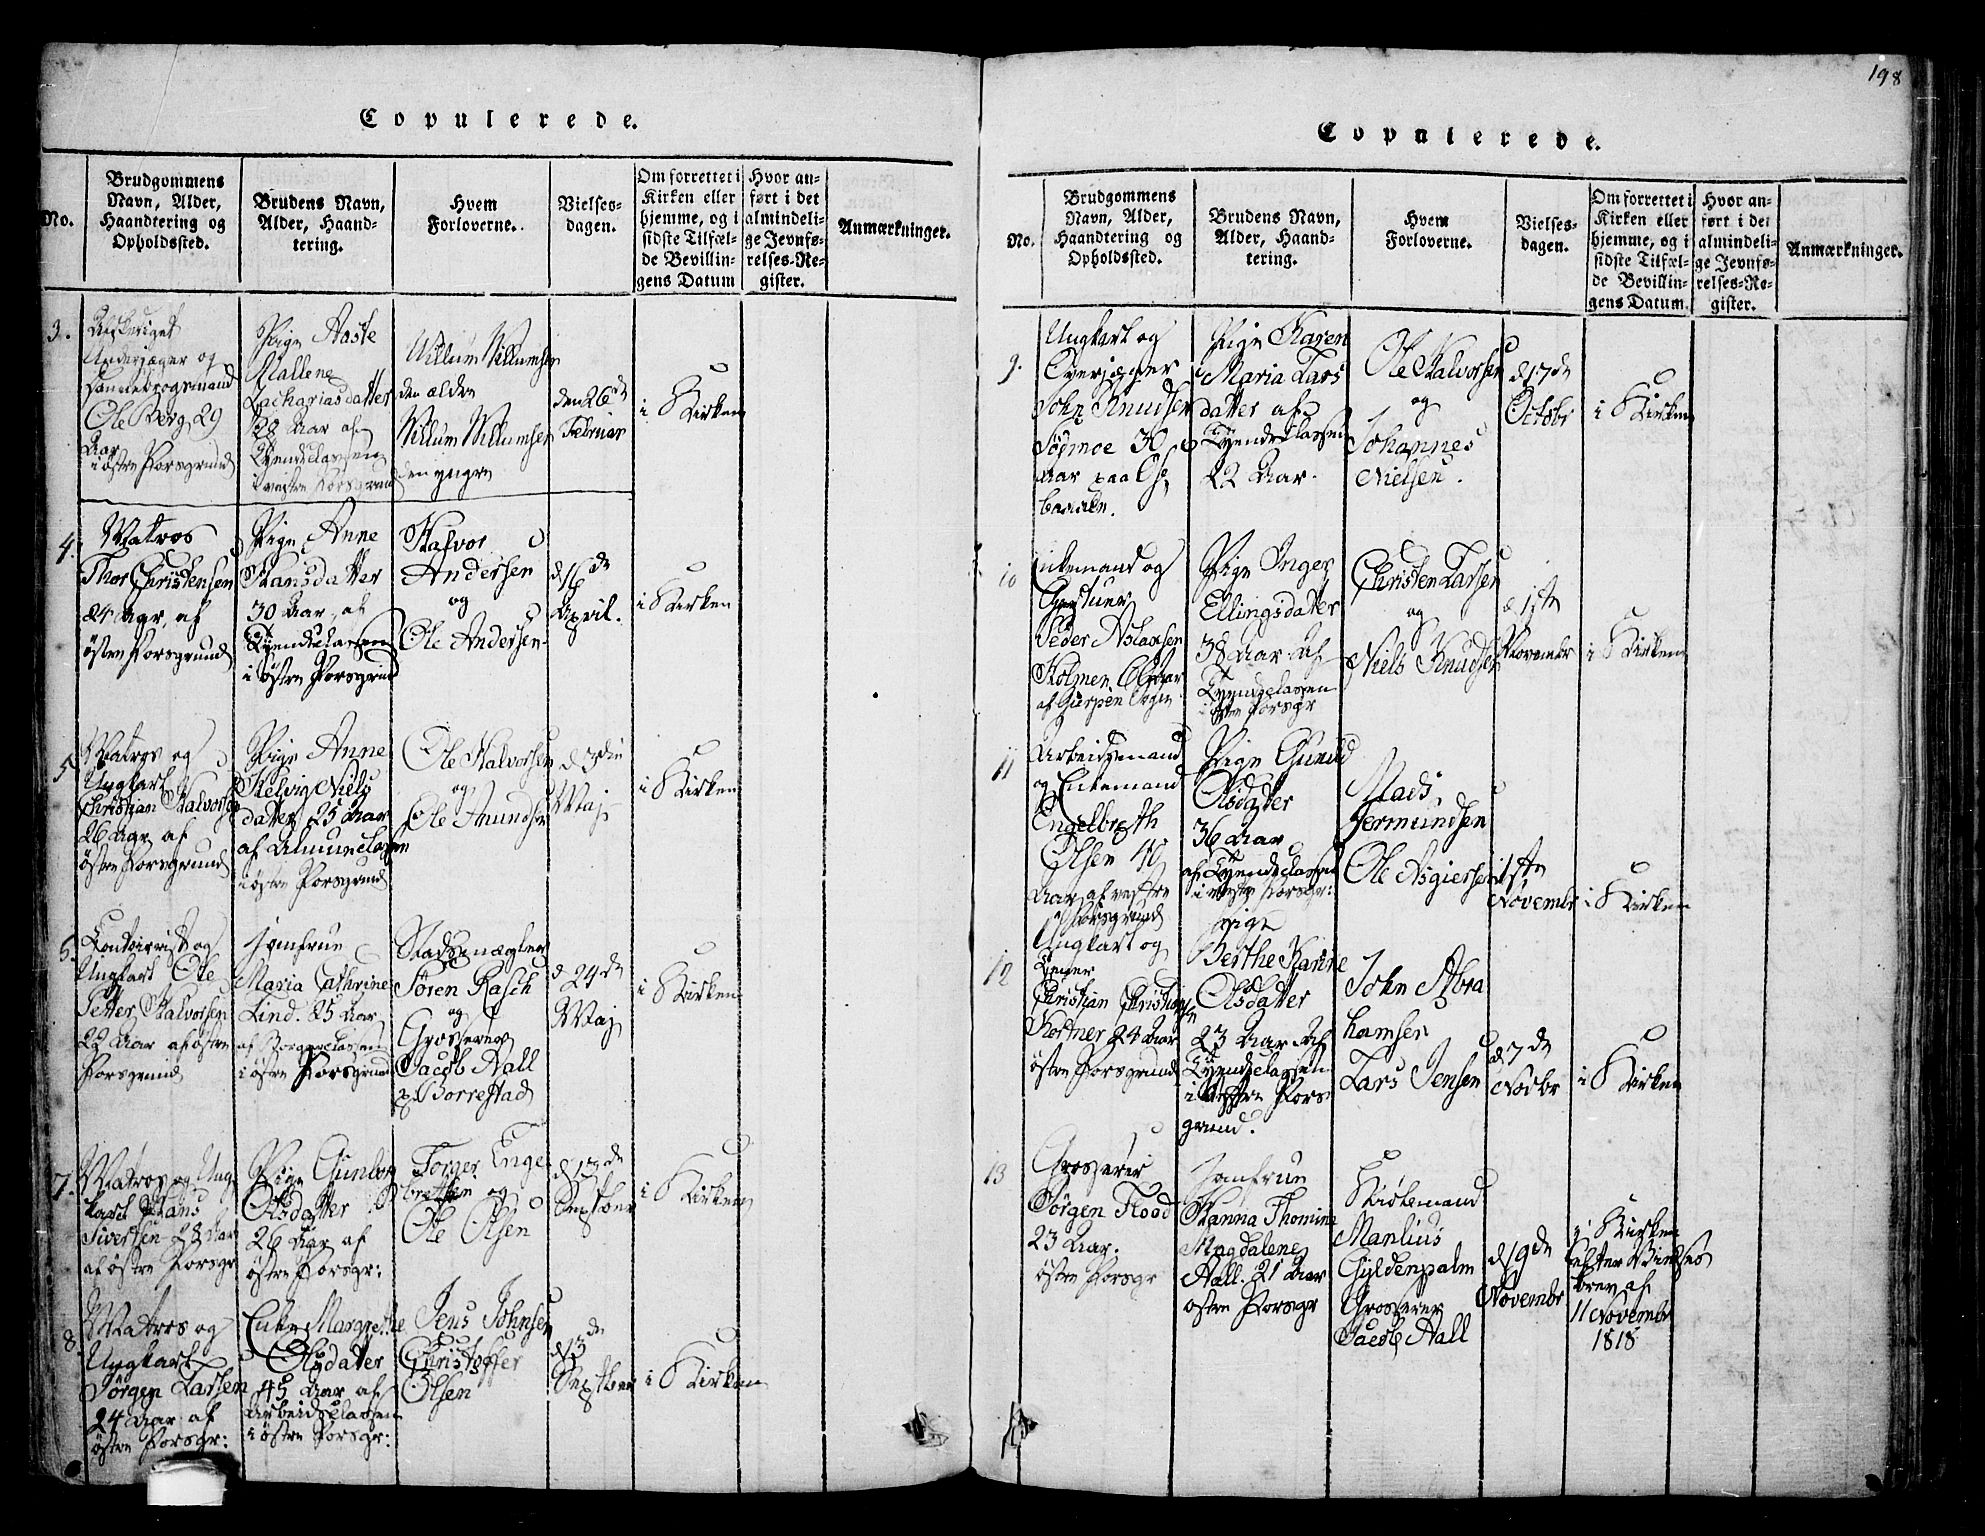 198
Copulerede.
No.
Brudgommens
Navn, Alder,
Haandtering og
Opholdssted.
Brudens Navn,
Alder, Haand-
tering.
Hvem
Forloverne.
Vielses-
dagen.
Om forrettet i
Kirken eller
hjemme, og i
sidste Tilfæl-
de Bevillin-
gens Datum
Hvor an-
ført i det
almindeli-
ge Jevnfø-
relses-Re-
gister.
Anmærkninger.
3.
Underjæger og
Dannebrogsmand
Ole Berg 29
Aar
i østre Porsgrund
Pige Aaste
Mallene
Zachariasdatter
28 Aar af
Tyendeclassen
i vestre Porsgrund
Willum Willumsen
den ældre
Willum Willumsen
den yngre
den 26de
Februar
i Kirken
4.
Matros
Thor Christensen
24 Aar, af
østre Porsgrund
Pige Anne
Hansdatter
30 Aar, af
Tyendeclassen
i østre Porsgrund
Halvor
Andersen
og
Ole Andersen
d 16de
April.
i Kirken
5.
Matros og
Ungkarl
Christian Halvorsen
26 Aar af
østre Porsgrund
Pige Anne
Helvig Niels
datter 25 Aar
af Almueclassen
i østre Porsgrund
Ole Halvorsen
og
Ole Amundsen
d 3die
Maj
i Kirken
6.
Contoirist og
Ungkarl Ole
Petter Halvorsen
22 Aar af østre
Porsgrund
Jomfrue
Maria Cathrine
Lind. 25 Aar
af Borgerclassen
i østre Porsgrund
Stadsmægler
Søren Rasch
og
Grosserer
Jacob Aall
p Borrestad
d 24de
Maj
i Kirken
7.
Matros og Ung
karl Hans
Siversen 28 Aar
af østre Porsgr
Pige Gunbor
Olsdatter
26 Aar af
østre Porsgr:
Torger Enge
bretsen og
Ole Olsen
d 13de
Septber
i Kirken
8.
Matros og
Ungkarl
Jørgen Larsen
24 Aar af
østre Porsgr:
Enke Margrethe
Olsdatter
45 Aar af
Arbeidsclassen
i østre Porsgr:
Jens Johnsen
Christoffer
Olsen
d 13de
Septber
i Kirken
Copulerede.
No.
Brudgommens
Navn, Alder,
Haandtering og
Opholdssted.
Brudens Navn,
Alder, Haand-
tering.
Hvem
Forloverne.
Vielses-
dagen.
Om forrettet i
Kirken eller
hjemme, og i
sidste Tilfæl-
de Bevillin-
gens Datum.
Hvor an-
ført i det
almindeli-
ge Jevnfø-
relses-Re-
gister.
Anmærkninger.
9.
Ungkarl og
Overjæger
John Knudsen
30
Aar paa
Pige Karen
Maria Lars
datter af
Tyendeclassen
22 Aar.
Ole Halvorsen
og
Johannes
Nielsen.
d 17de
Octobr
i Kirken
10
Enkemand og
Peder Aslaksen
Holmen
af Gjerpen Sogn
Pige Inger
Ellingsdatter
38 Aar af
Tyendeclassen
i østre Porsgr
Christen Larsen
og
Niels Knudsen
d 1ste
Novembr
i Kirken
11
Arbeidsmand
og Enkemand
Engelbreth
Olsen 40
Aar af vestre
Porsgrund
Pige Gunild
Olsdatter
36 Aar
af Tyendeclassen
i vestre Porsgr:
Mads
Jermundsen
Ole Asgiersen
1ste
Novembr
i Kirken
12
Ungkarl og
Christian Christians
24 Aar
østre Porsgrund
Pige
Berthe Karine
Olsdatter
23 Aar af
Tyendeclassen
i vestre Pors
grund.
John Abra
hamsen
Lars Jensen
d 7de
Novbr
i Kirken
13
Grosserer
Jørgen Flood
23 Aar.
østre Porsgr
Jomfrue
Hanna Thomine
Magdalene
Aall. 21 Aar
østre Porsgr
Manlius
Gyldenpalm
Grosserer
Jacob Aall
d 19de
Novembr
i Kirken
efter Vielses
brev af
11 Novembr
1818